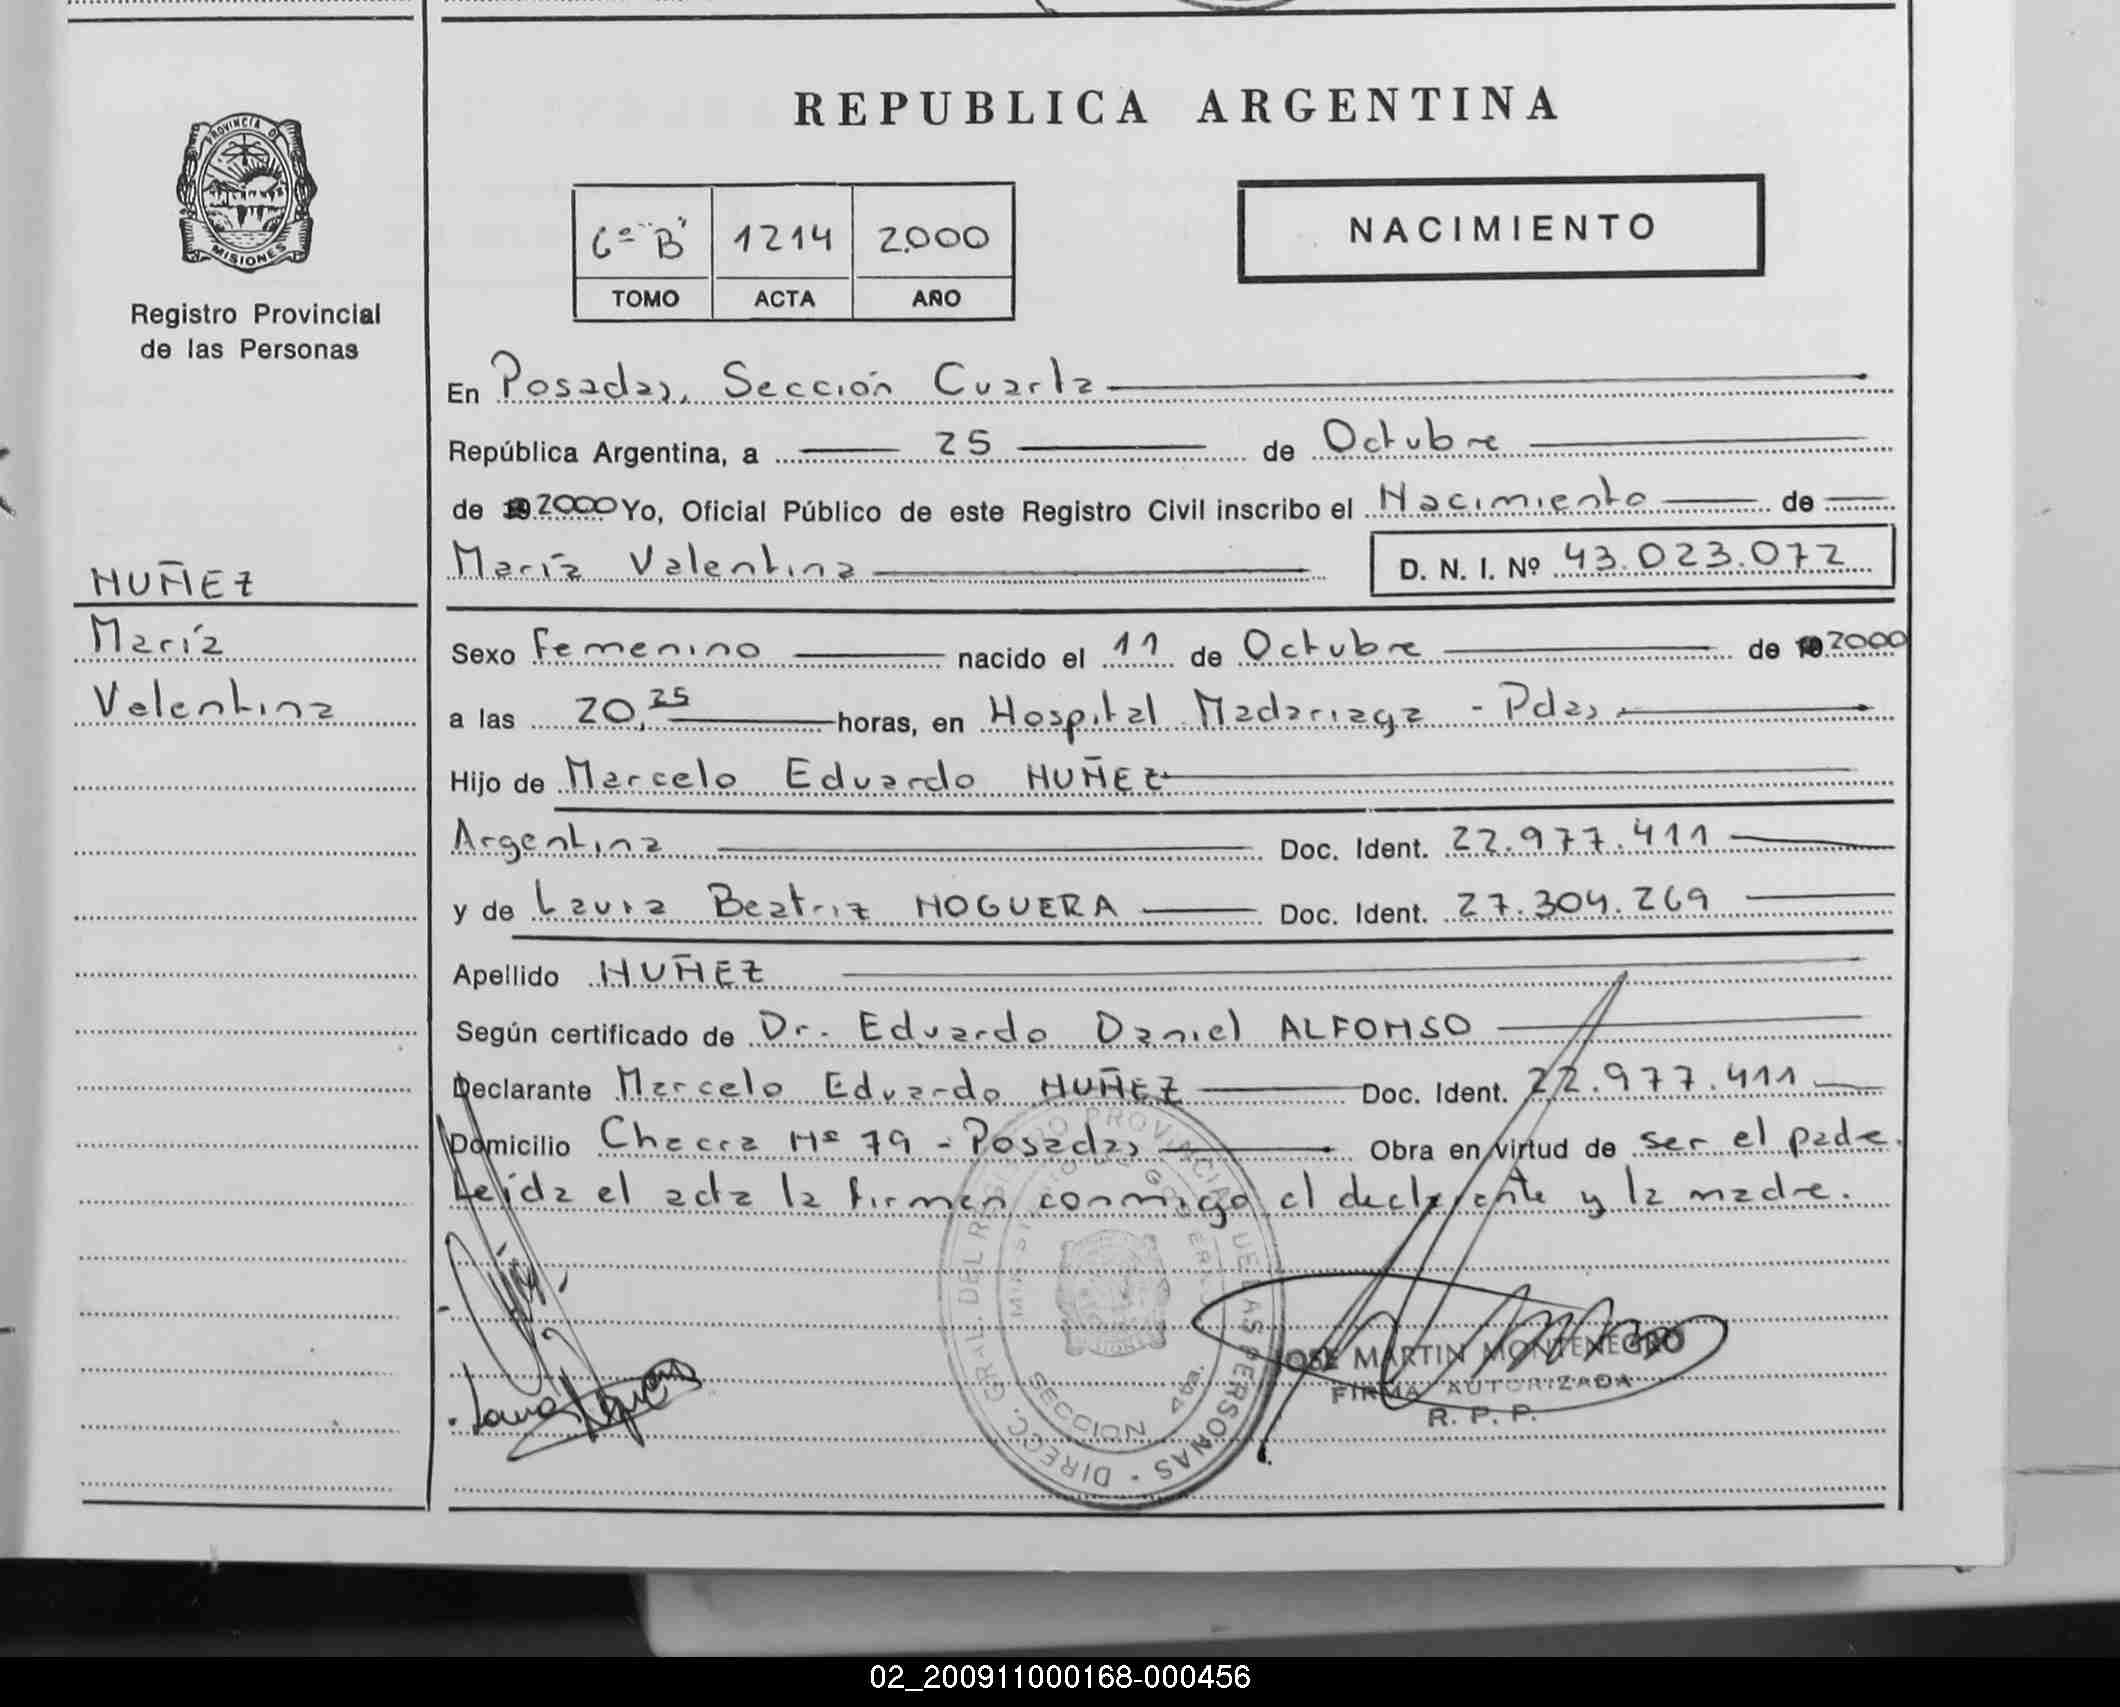 PROVINCIA D
MISIONES
Registro Provincial
de las Personas
NUÑEZ
María
Valentina
REPUBLICA ARGENTINA
6º "B" 1214 2000
TOMO ACTA AÑO
NACIMIENTO
En Posadas, Sección Cuarta
República Argentina, a 25 de Octubre
de 2000 Yo, Oficial Público de este Registro Civil inscribo el Nacimiento de
María Valentina D. N. I. Nº 43.023.072
Sexo Femenino nacido el 11 de Octubre de 2000
a las 20,25 horas, en Hospital Madariaga - Pdas,
Hijo de Marcelo Eduardo NUÑEZ
Argentina Doc. Ident. 22.977.411
y de Laura Beatriz NOGUERA Doc. Ident. 27.304.269
Apellido NUÑEZ
Según certificado de Dr. Eduardo Daniel ALFONSO
Declarante Marcelo Eduardo NUÑEZ Doc. Ident. 22.977.411
Domicilio Chacra Nº 79 - Posadas Obra en virtud de ser el padre.
Leída el acta la firman conmigo el declarante y la madre.
DIRECC. GRAL. DEL REGISTRO PROVINCIAL DE LAS PERSONAS -
MINISTERIO DE GOBIERNO
SECCION 4ta.
JOSE MARTIN MONTENEGRO
FIRMA AUTORIZADA
R. P. P.
02_200911000168-000456